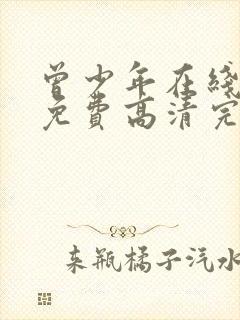 曾少年在线
免费高清完
来瓶橘子汽水